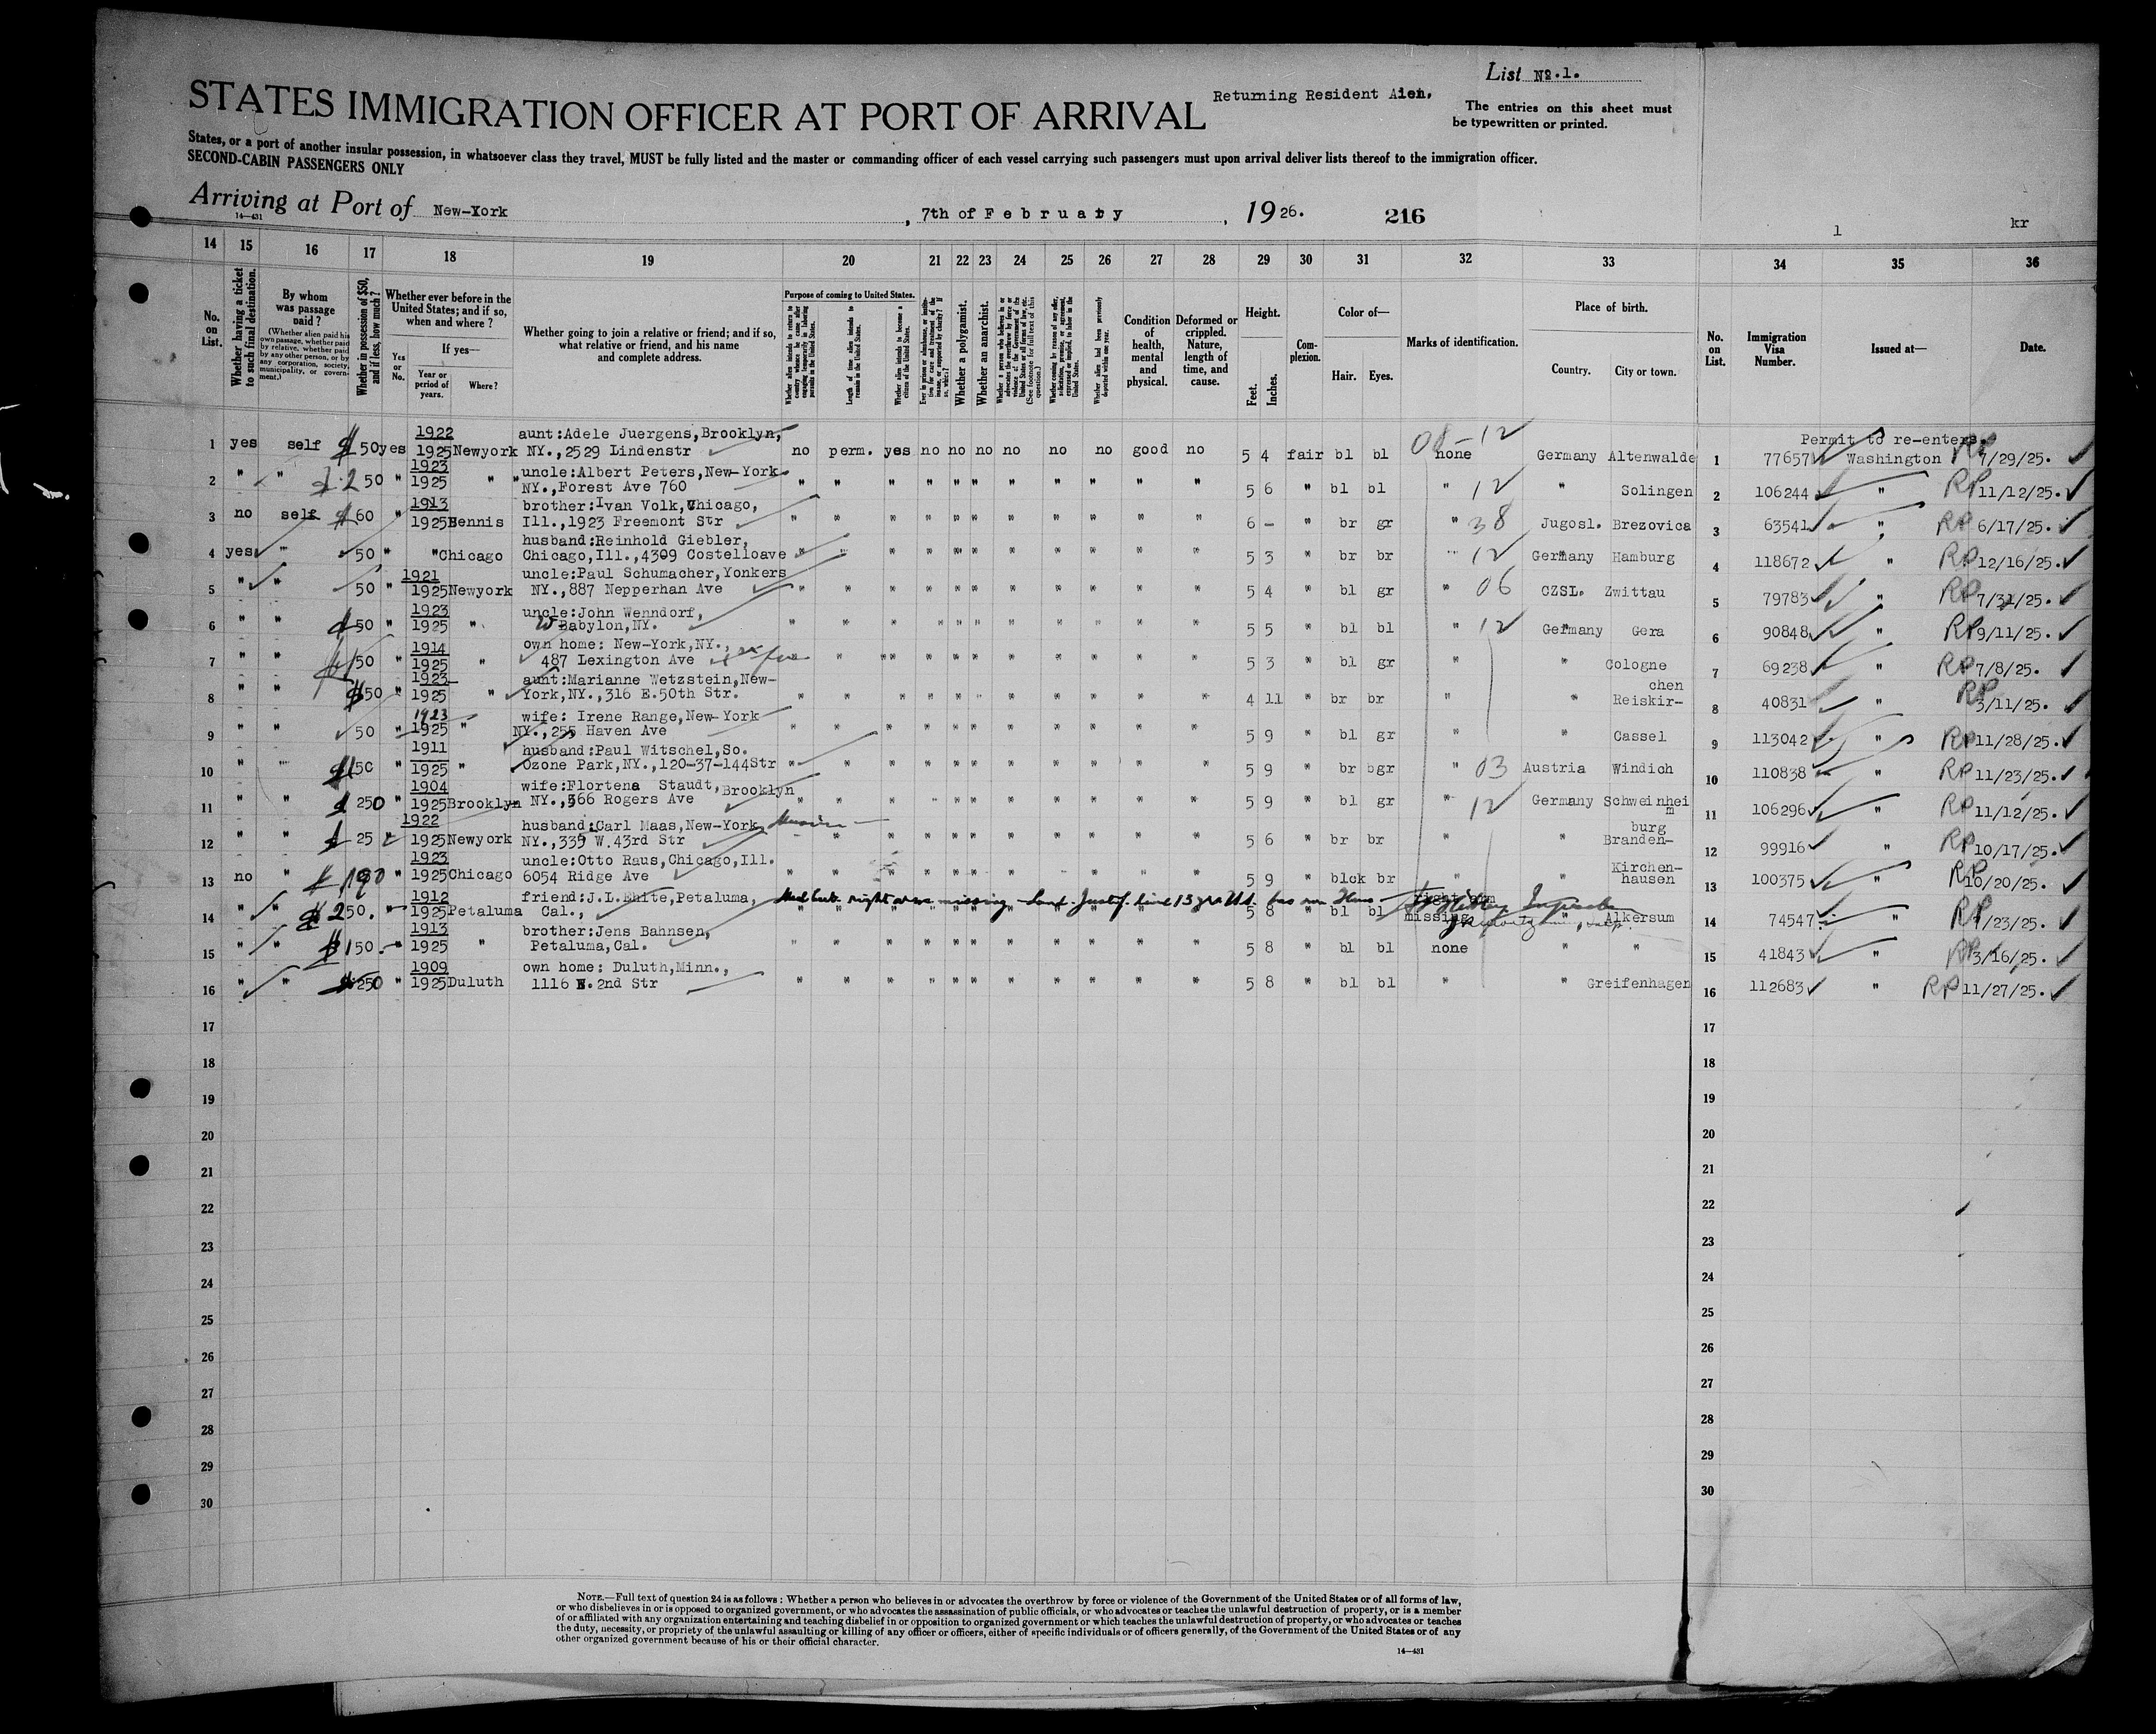 List No. 1.
Returning Resident Alen.
The entries on this sheet must
be typewritten or printed.
STATES IMMIGRATION OFFICER AT PORT OF ARRIVAL
States, or a port of another insular possession, in whatsoever class they travel, MUST be fully listed and the master or commanding officer of each vessel carrying such passengers must upon arrival deliver lists thereof to the immigration officer.
SECOND-CABIN PASSENGERS ONLY
Arriving at Port of New-York, 7th of February, 1926. 216
14—431
1 kr
14 15 16 17 18 19 20 21 22 23 24 25 26 27 28 29 30 31 32 33 34 35 36
No. on List.
Whether having a ticket to such final destination.
By whom was passage paid?
(Whether alien paid his own passage, whether paid by relative, whether paid by any other person, or by any corporation, society, municipality, or government.)
Whether in possession of $50, and if less, how much?
Whether ever before in the United States; and if so, when and where?
Yes or No.
If yes—
Year or period of years.
Where?
Whether going to join a relative or friend; and if so, what relative or friend, and his name and complete address.
Purpose of coming to United States.
Length of time alien intends to remain in the United States.
Whether alien intends to become a citizen of the United States.
Whether a polygamist.
Whether an anarchist.
Condition of health, mental and physical.
Deformed or crippled. Nature, length of time, and cause.
Height.
Feet. Inches.
Complexion.
Color of—
Hair. Eyes.
Marks of identification.
Place of birth.
Country. City or town.
No. on List.
Immigration Visa Number.
Issued at—
Date.
1 yes self $50 yes 1922 1925 Newyork aunt:Adele Juergens,Brooklyn, NY.,2529 Lindenstr no perm. yes no no no no no no good no 5 4 fair bl bl none 08-12 Germany Altenwalde 1 77657 Permit to re-enter Washington RP 7/29/25.
2 " " 50 " 1923 1925 " " uncle:Albert Peters,New-York NY.,Forest Ave 760 " " " " " " " " " " " 5 6 " bl bl " 12 " Solingen 2 106244 " RP 11/12/25.
3 no self $60 " 1913 1925 Hennis brother:Ivan Volk,Chicago, Ill.,1923 Freemont Str " " " " " " " " " " " 6 - " br gr " 38 Jugosl. Brezovica 3 63541 " RP 6/17/25.
4 yes " 50 " " Chicago husband:Reinhold Giebler, Chicago,Ill.,4309 Costelloave " " " " " " " " " " " 5 3 " br br " 12 Germany Hamburg 4 118672 " RP 12/16/25.
5 " " 50 " 1921 1925 Newyork uncle:Paul Schumacher,Yonkers NY.,887 Nepperhan Ave " " " " " " " " " " " 5 4 " bl gr " 06 CZSL. Zwittau 5 79783 " RP 7/31/25.
6 " " $50 " 1923 1925 " uncle:John Wenndorf, W Babylon,NY. " " " " " " " " " " " 5 5 " bl bl " 12 Germany Gera 6 90848 " RP 9/11/25.
7 " " 50 " 1914 1925 " own home: New-York,NY., 487 Lexington Ave " " " " " " " " " " 5 3 " bl gr " " Cologne 7 69238 " RP 7/8/25.
8 " " $50 " 1923 1925 " aunt:Marianne Wetzstein,New-York,NY.,316 E.50th Str. " " " " " " " " " " " 4 11 " br br " " Reiskirchen 8 40831 " RP 3/11/25.
9 " " 50 " 1923 1925 " wife: Irene Range,New-York NY.,255 Haven Ave " " " " " " " " " " " 5 9 " bl gr " " Cassel 9 113042 " RP 11/28/25.
10 " " $150 " 1911 1925 " husband:Paul Witschel,So. Ozone Park,NY.,120-37-144Str " " " " " " " " " " " 5 9 " br bgr " 03 Austria Windich 10 110838 " RP 11/23/25.
11 " " $250 " 1904 1925 Brooklyn wife:Flortena Staudt,Brooklyn NY.,366 Rogers Ave " " " " " " " " " " " 5 9 " bl gr " 12 Germany Schweinheim 11 106296 " RP 11/12/25.
12 " " $25 1922 1925 Newyork husband:Carl Maas,New-York, NY.,339 W.43rd Str " " " " " " " " " " " 5 6 " br br " " Brandenburg 12 99916 " RP 10/17/25.
13 no " $190 " 1923 1925 Chicago uncle:Otto Raus,Chicago,Ill. 6054 Ridge Ave " " " " " " " " " " " 5 9 " blck br " " Kirchenhausen 13 100375 " RP 10/20/25.
14 " " $250. " 1912 1925 Petaluma friend:J.L.Ehite,Petaluma, Cal., right arm missing 5 8 " bl bl right arm missing " Alkersum 14 74547 " RP 7/23/25.
15 " " $150. " 1913 1925 " brother:Jens Bahnsen, Petaluma,Cal. " " " " " " " " " " " 5 8 " bl bl none " " 15 41843 " RP 3/16/25.
16 " " $250 " 1909 1925 Duluth own home: Duluth,Minn., 1116 E.2nd Str " " " " " " " " " " " 5 8 " bl bl " " Greifenhagen 16 112683 " RP 11/27/25.
17 17
18 18
19 19
20 20
21 21
22 22
23 23
24 24
25 25
26 26
27 27
28 28
29 29
30 30
NOTE.—Full text of question 24 is as follows: Whether a person who believes in or advocates the overthrow by force or violence of the Government of the United States or of all forms of law,
or who disbelieves in or is opposed to organized government, or who advocates the assassination of public officials, or who advocates or teaches the unlawful destruction of property, or is a member
of or affiliated with any organization entertaining and teaching disbelief in or opposition to organized government or which teaches the unlawful destruction of property, or who advocates or teaches
the duty, necessity, or propriety of the unlawful assaulting or killing of any officer or officers, either of specific individuals or of officers generally, of the Government of the United States or of any
other organized government because of his or their official character.
14—431